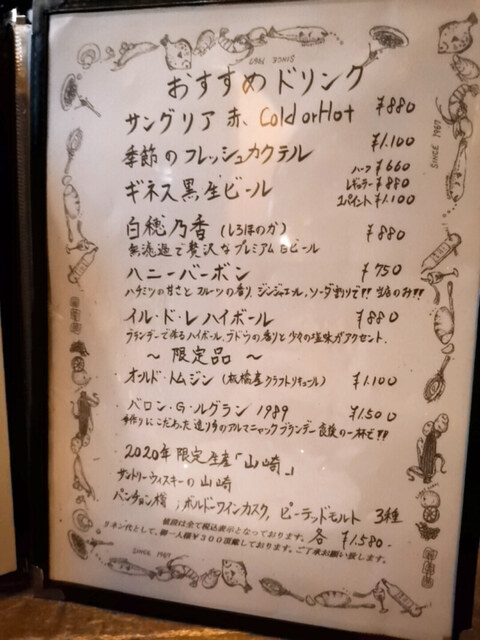 SINCE 1967
おすすめドリンク
サングリア 赤、Cold or Hot ¥880
季節のフレッシュカクテル ¥1.100
ハーフ ¥660
ギネス黒生ビール レギュラー ¥880
1パイント ¥1.100
白穂乃香 (しろほのか) ¥880
無濾過で贅沢なプレミアム生ビール
ハニーバーボン ¥750
ハチミツの甘さとフルーツの香り、ジンジャエール、ソーダ割りで!!
イル・ド・レ ハイボール ¥880
ブランデーで作るハイボール。ブドウの香りと少々の塩味がアクセント。
SINCE 1967
～ 限定品 ～
オールド・トムジン (板橋産クラフトリキュール) ¥1.100
バロン・G・ルグラン 1989 ¥1.500
手作りにこだわった造り手のアルマニャックブランデー 食後の一杯で!!
2020年限定生産「山崎」
サントリーウィスキーの山崎
パンチョン樽、ボルドーワインカスク、ピーテッドモルト 3種
各 ¥1.580-
値段は全て税込表示となっております。
リネン代として、御一人様¥300頂戴しております。ご了承お願い致します。
SINCE 1967